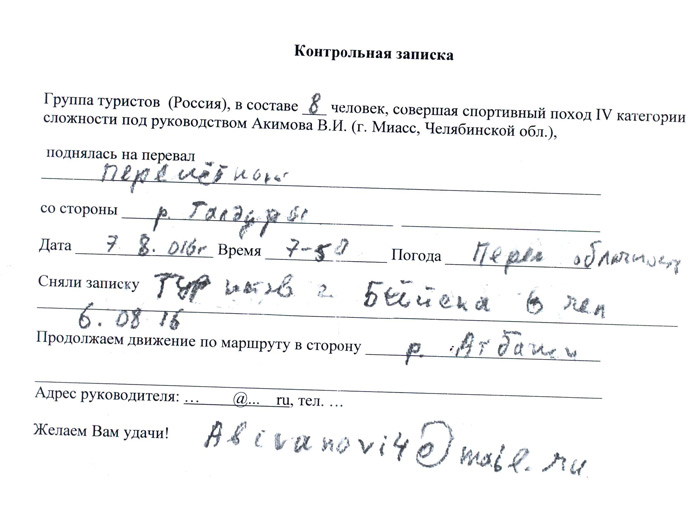 Контрольная записка
Группа туристов (Россия), в составе 8 человек, совершая спортивный поход IV категории
сложности под руководством Акимова В.И. (г. Миасс, Челябинской обл.),
поднялась на перевал
со стороны р. Талдура
Дата 7 8. 016г Время 7-50 Погода Перем облачность
Сняли записку Туристов г. Бийска 6 чел
6. 08 16
Продолжаем движение по маршруту в сторону р. Атбаши
Адрес руководителя: … @... ru, тел. …
Желаем Вам удачи! Abivanovi4@mail.ru